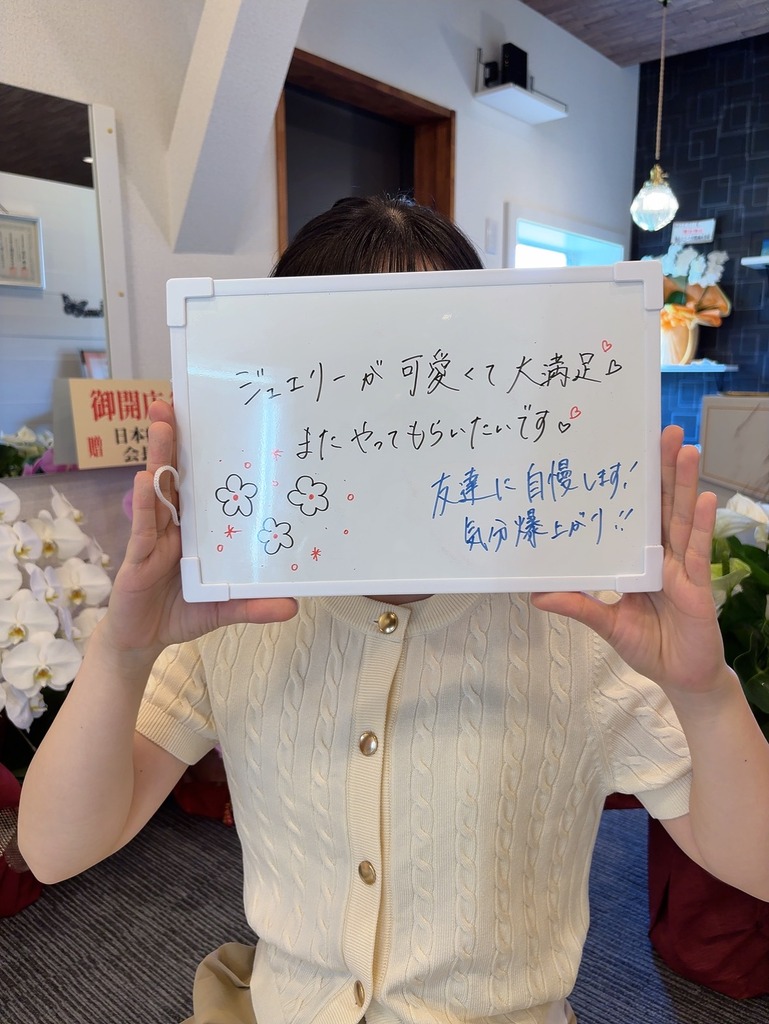 ジュエリーが可愛くて大満足♡♡
またやってもらいたいです♡♡
友達に自慢します!
気分爆上がり!!
御開店
贈
日本
会長